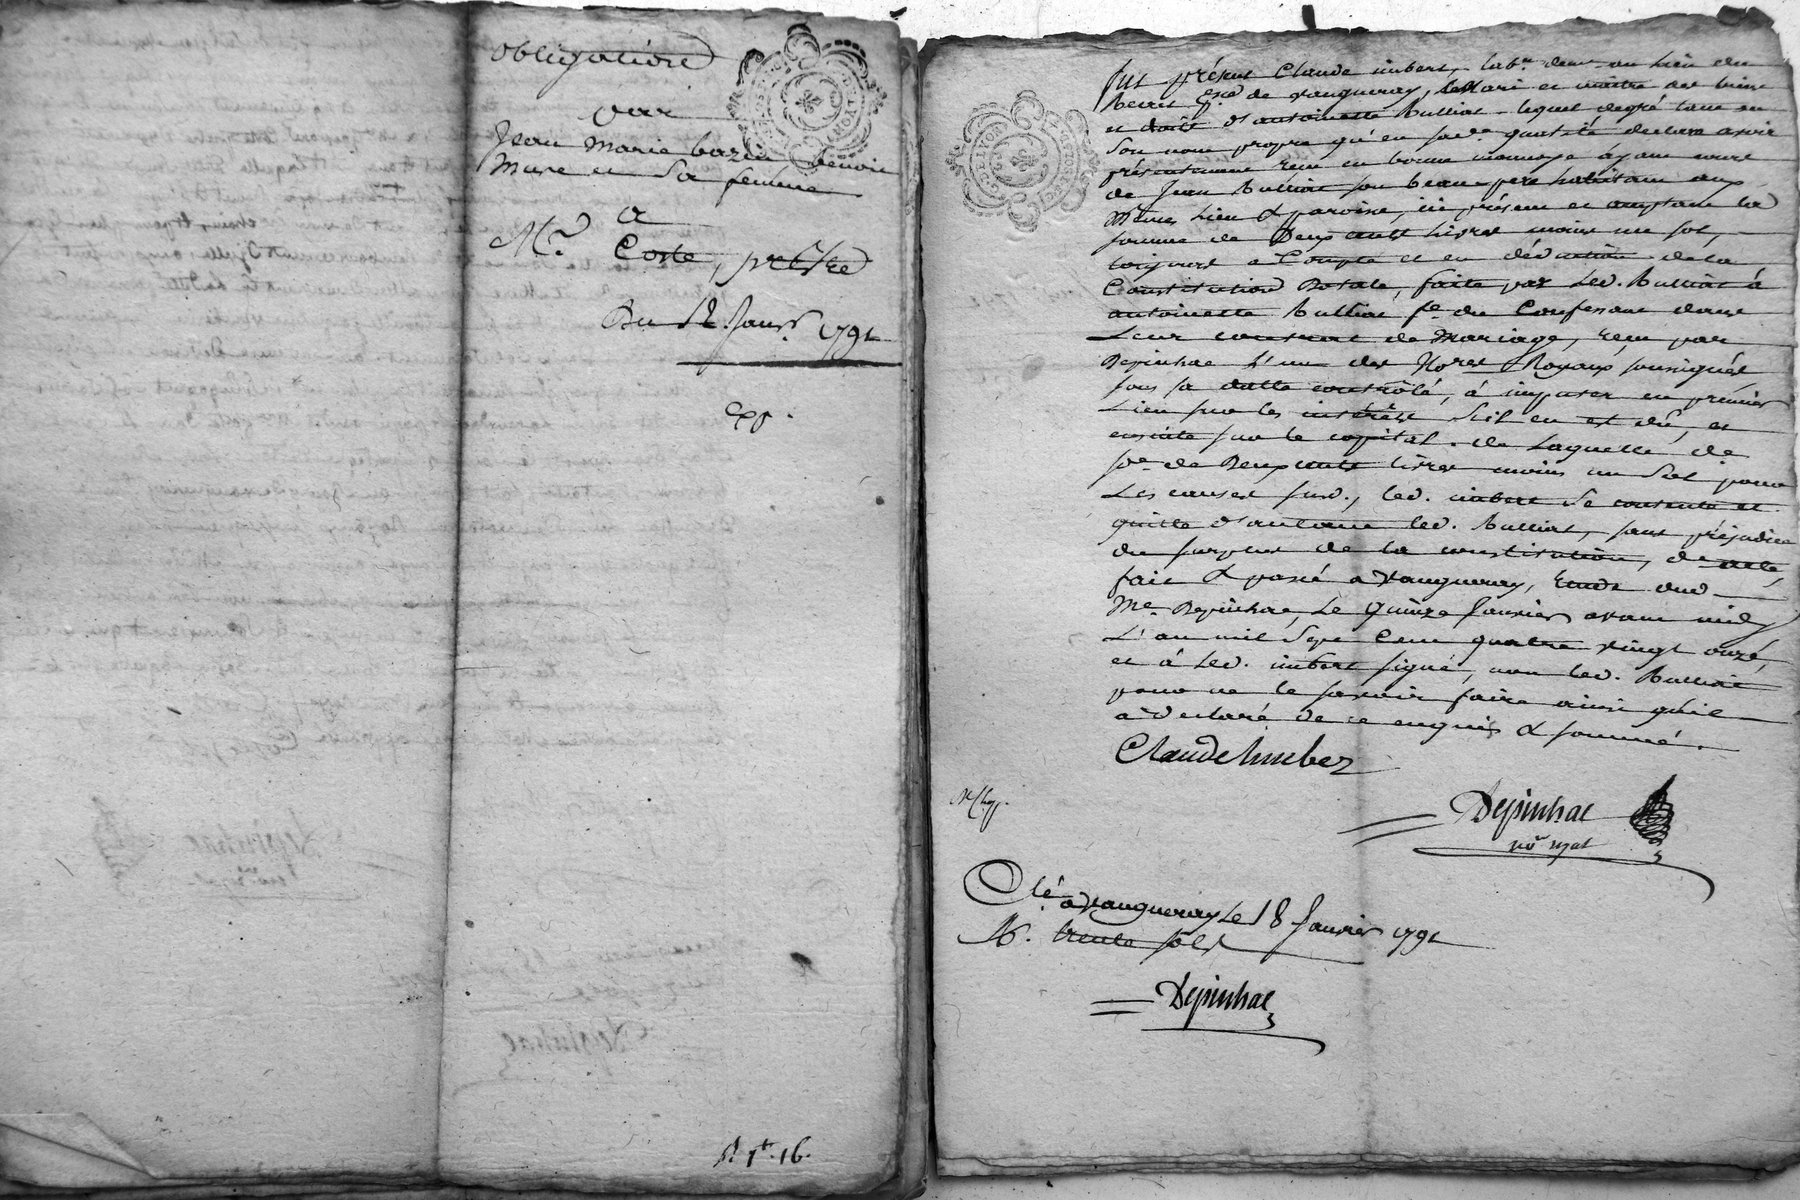 obligation
par
Jean Marie bazin benoin
Mure et Sa femme
a
Mre. Coste, prestre
Du 12. Janvr. 1791
Exp.
R. 1tt. 16.
fut présent Claude imbert, labr. demt. au lieu du
de vaugneray, Mari et maitre des biens
et droits d'antoinette Bulliat lequel de gré tant en
Son nom propre qu'en sad. qualité declare avoir
présentement reçu en bonne monnoye ayant cours
de Jean Bulliat son beau pere habitant aux
Mêmes Lieu & paroisse, ici présent et acceptant la
somme de Deux cents Livres moins un sol,
toujours a Compte et en déduction de la
Constitution Dotale, faite par led. Bulliat à
antoinette Bulliat fe. du Confessant dans
Leur contrat de Mariage, reçu par
Depinhac L'un des Nores Royaux soussignés
sous sa datte controlé, à imputer en prémier
Lieu sur les intérêts S'il en est dû, et
ensuite sur le capital. de Laquelle de
se. de Deux cents Livres moins un Sol pour
Les causes susd., led. imbert Se contente et
quitte d'autant led. Bulliat, sans préjudice
du surplus de la constitution, dt. acte,
fait & passé a Vaugneray, Etude dud.
Me. Depinhac, Le Quinze Janvier avant midy
L'an mil Sept Cent quatre vingt onze,
et à led. imbert signé, non led. Bulliat
pour ne le savoir faire ainsi qu'il
a declaré de ce enquis & sommé.
Claude Imbez
Depinhac
nore. royal
Clé. a Vaugneray Le 18 Janvier 1791
R. trente sols
Depinhac